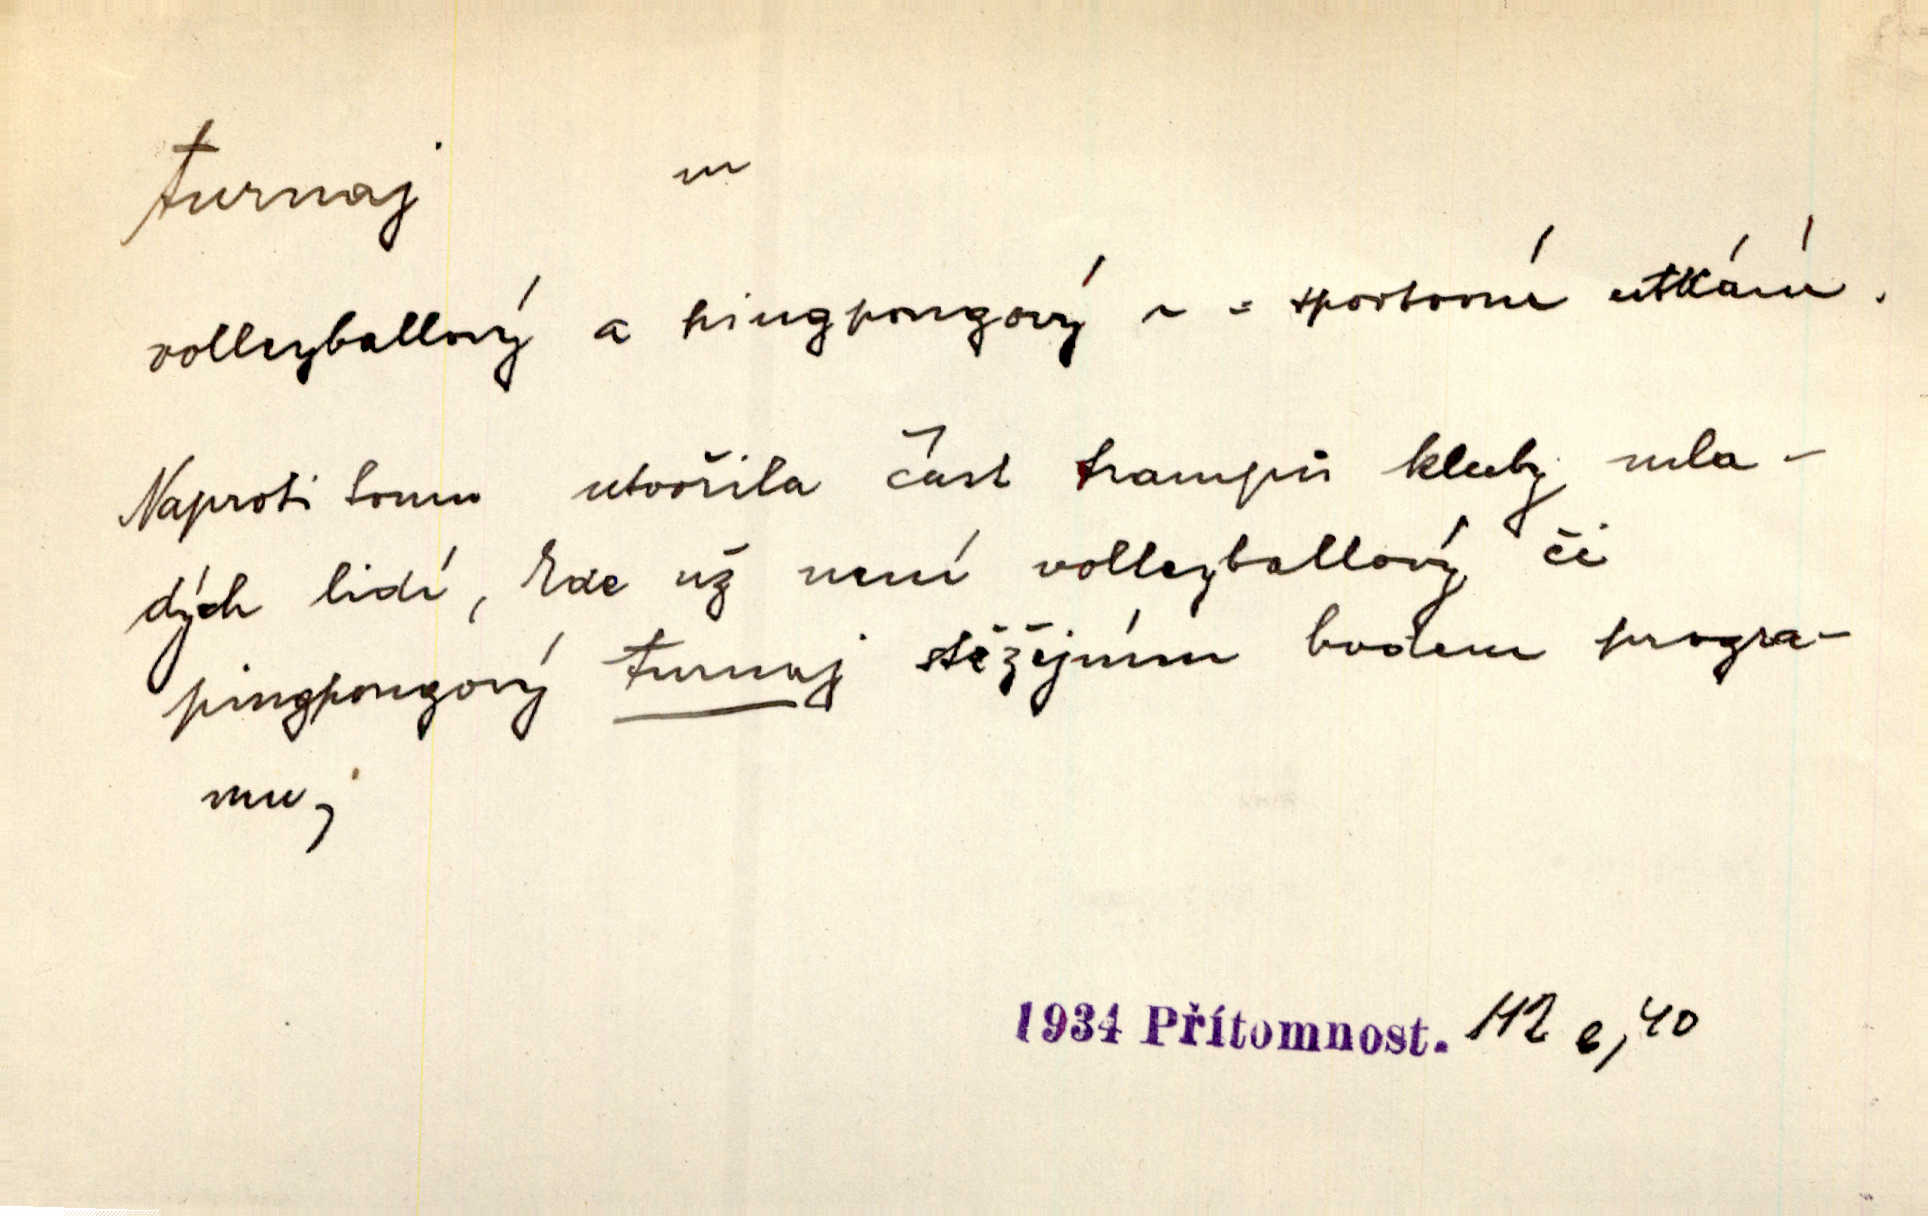 turnaj m
volleyballový a pingpongový ~ = sportovní utkání.
Naproti tomu utvořila část trampů kluby mla-
dých lidí, kde už není volleyballový či
pingpongový turnaj stěžejním bodem progra-
mu;
1934 Přítomnost. 112 e, 40